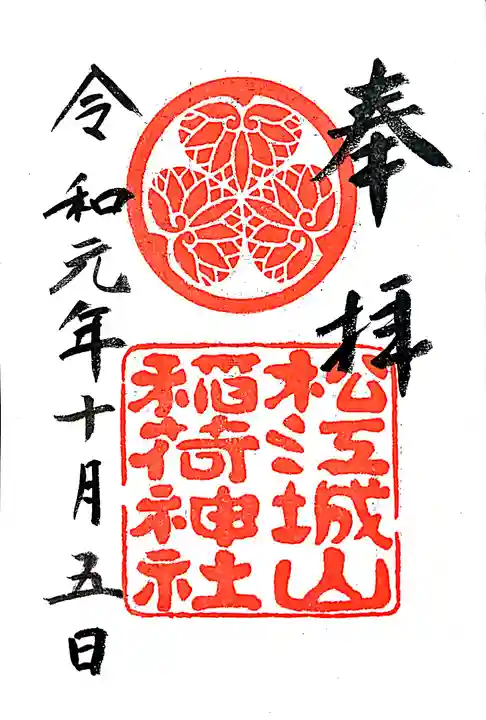 奉拝
松江城山
稲荷神社
令和元年十月五日